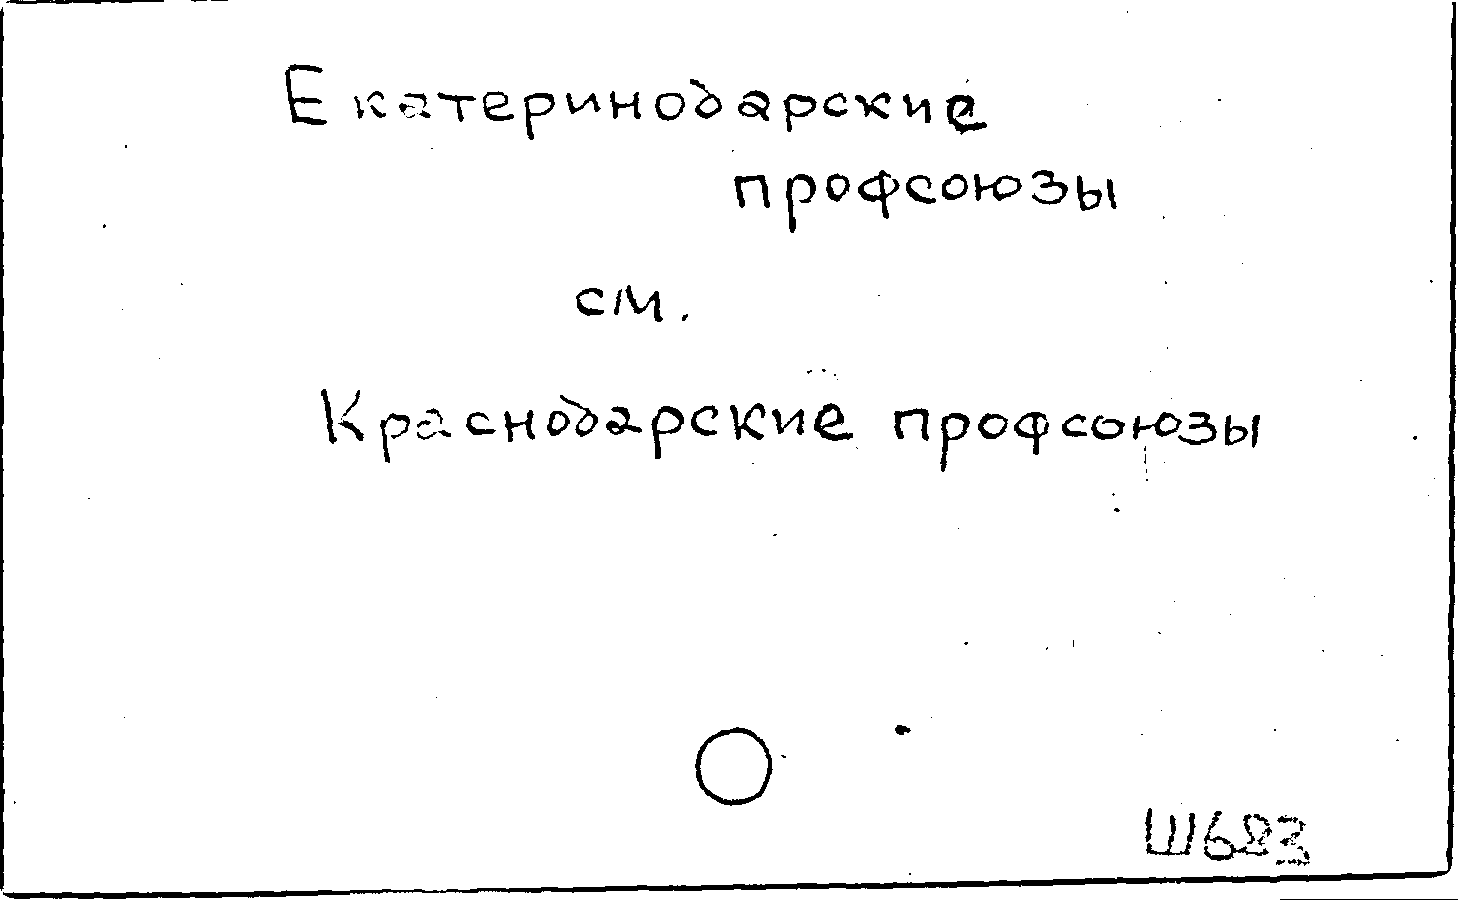 Екатеринодарские
профсоюзы
см.
Краснодарские профсоюзы
Ш683